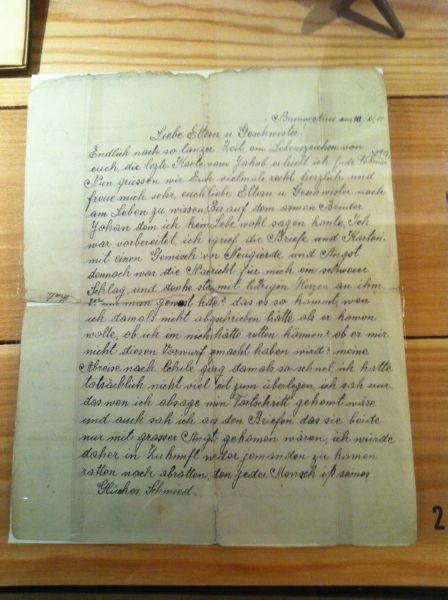 Buenos Aires am 10.
Liebe Eltern u Geschwister.
Endlich nach so langer Zeit ein Lebenszeichen von
euch, die lezte Karte vom Jakob erhielt ich Ende Februar
Nun grüssen wir Euch vielmals recht herzlich und
freue mich sehr, euch liebe Eltern u Geschwister noch
am Leben zu wissen. Bis auf dem armen Bruder
Johan dem ich kein Lebe wohl sagen konte. Ich
war vorbereitet, ich grief die Briefe und Karten
mit einen Gemisch von Neugierde und Angst
dennoch war die Nachricht für mich ein schwerer
Schlag, und denke stets mit blutigen Herzen an ihm
man gewust häte? das es so kommt, wen
ich damals nicht abgschrieben hätte als er komen
wolte, ob ich im nich hätte retten können? ob er mir
nicht diesen Vorwurf gemacht haben wird? meine
Abreise nach Chile ging damals so schnel ich hatte
tatsächlich nicht viel Zeit zum überlegen, ich sah nur
das wen ich absage mein Fortschrett gehemt wäre
und auch sah ich aus den Briefen das sie beide
nur mit grosser Angst gekomen wären, ich würde
daher in Zukunft weder jemanden zu komen
ratten noch abratten, den jeder Mensch ist seines
Glückes Schmied.
2